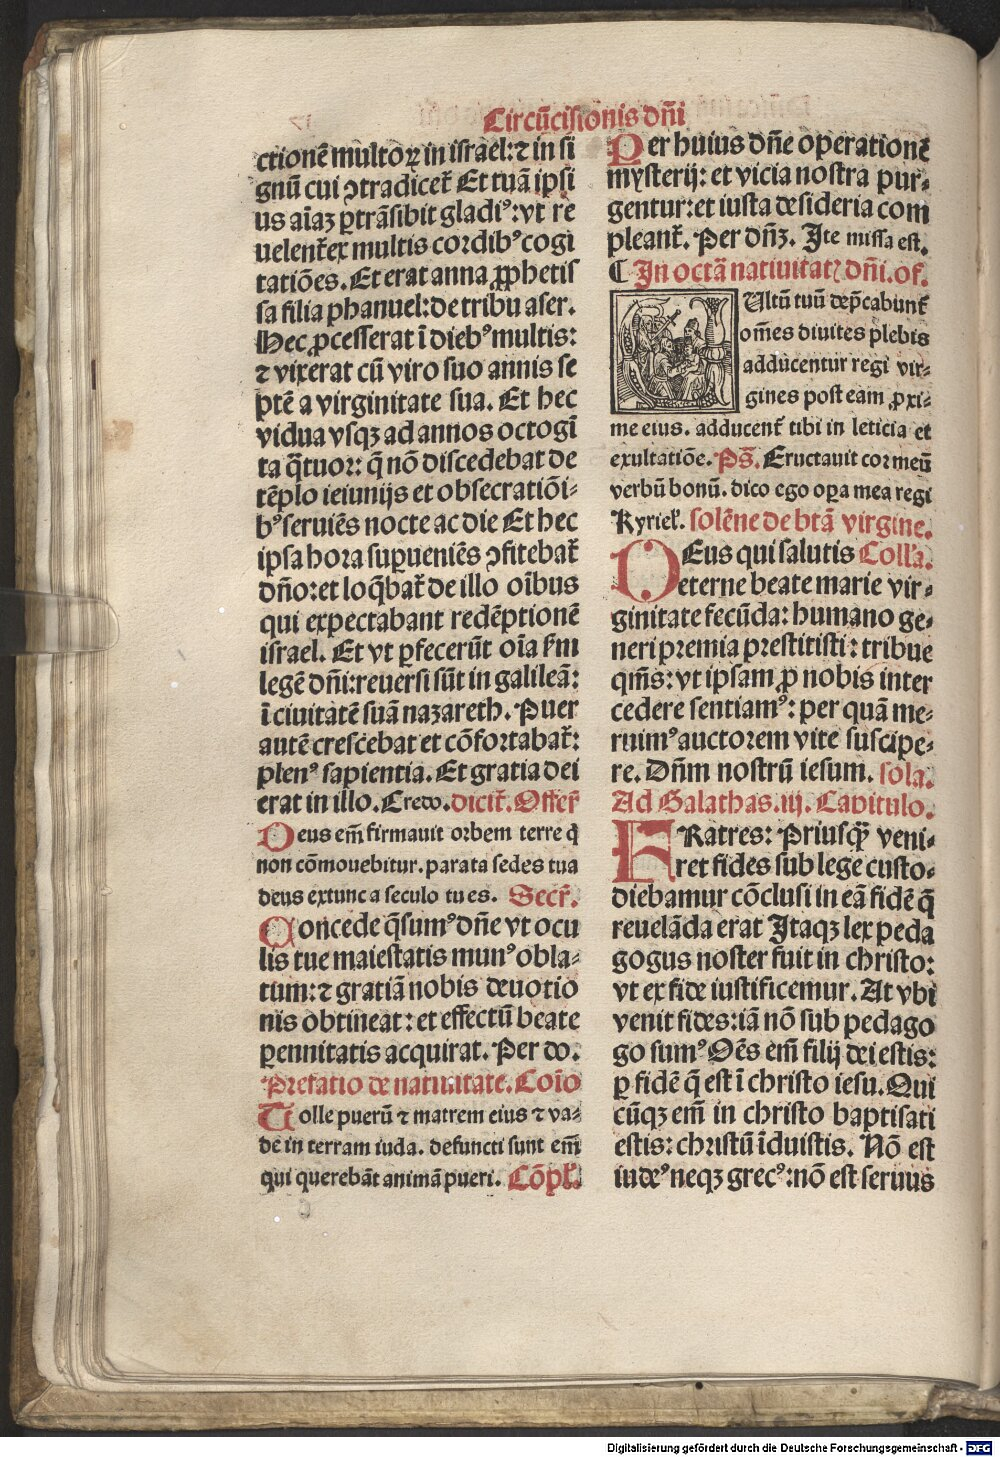 Circūcisiōnis dn̄i
ctionē multoꝝ in israel: ⁊ in si
gnū cui ꝯtradicet̃ Et tuā ipsi
us aīaꝫ ꝑtrāsibit gladiꝰ: vt re
uelent̃ ex multis cordibꝰ cogi
tatiōes. Et erat anna ꝓphetis
sa filia phanuel: de tribu aser.
Hec ꝓcesserat ī diebꝰ multis:
⁊ vixerat cū viro suo annis se
ptē a virginitate sua. Et hec
vidua vsqꝫ ad annos octogī
ta q̄tuor: q̄ nō discedebat de
tēplo ieiunijs et obsecratiōi-
bꝰ seruiēs nocte ac die Et hec
ipsa hora suꝑueniēs ꝯfitebat̃
dn̄o: et loq̄bat̃ de illo oībus
qui expectabant redēptionē
israel. Et vt ꝑfecerūt oīa ẜm
legē dn̄i: reuersi sūt in galileā:
ī ciuitatē suā nazareth. Puer
autē crescebat et cōfortabat̃:
plenꝰ sapientia. Et gratia dei
erat in illo. Credo. dicit̃. Offer̃
Deus em̄ firmauit orbem terre q̄
non cōmouebitur. parata sedes tua
deus extunc a seculo tu es. Secr̃.
Concede q̄sumꝰ dn̄e vt ocu
lis tue maiestatis munꝰ obla-
tum: ⁊ gratiā nobis deuotio
nis obtineat: et effectū beate
ꝑennitatis acquirat. Per do.
Prefatio de natiuitate. Coīo
Tolle puerū ⁊ matrem eius ⁊ va-
de in terram iuda. defuncti sunt em̄
qui querebāt animā pueri. Cōpl̃.
Per huius dn̄e operationē
mysterij: et vicia nostra pur-
gentur: et iusta desideria com
pleant̃. Per dn̄ꝫ. Ite missa est.
¶ In octā natiuitatꝭ dn̄i. of.
Vltū tuū dep̄cabunt̃
om̄es diuites plebis
adducentur regi vir-
gines post eam ꝓxi-
me eius. adducent̃ tibi in leticia et
exultatiōe. Ps̄. Eructauit cor meū
verbū bonū. dico ego oꝑa mea regi
Kyriel̃. solēne de btā virgine.
DEus qui salutis Coll̃a.
eterne beate marie vir-
ginitate fecūda: humano ge-
neri premia prestitisti: tribue
qm̄s: vt ipsam ꝓ nobis inter
cedere sentiamꝰ: per quā me-
ruimꝰ auctorem vite suscipe-
re. Dn̄m nostrū iesum. sola.
Ad Galathas. iij. Capitulo.
FRatres: Priusqꝫ̄ veni-
ret fides sub lege custo-
diebamur cōclusi in eā fidē q̄
reuelāda erat Itaqꝫ lex peda
gogus noster fuit in christo:
vt ex fide iustificemur. At vbi
venit fides: iā nō sub pedago
go sumꝰ Oēs em̄ filij dei estis:
ꝑ fidē q̄ est ī christo iesu. Qui
cūqꝫ em̄ in christo baptisati
estis: christū īduistis. Nō est
iudeꝰ neqꝫ grecꝰ: nō est seruus
Digitalisierung gefördert durch die Deutsche Forschungsgemeinschaft - DFG